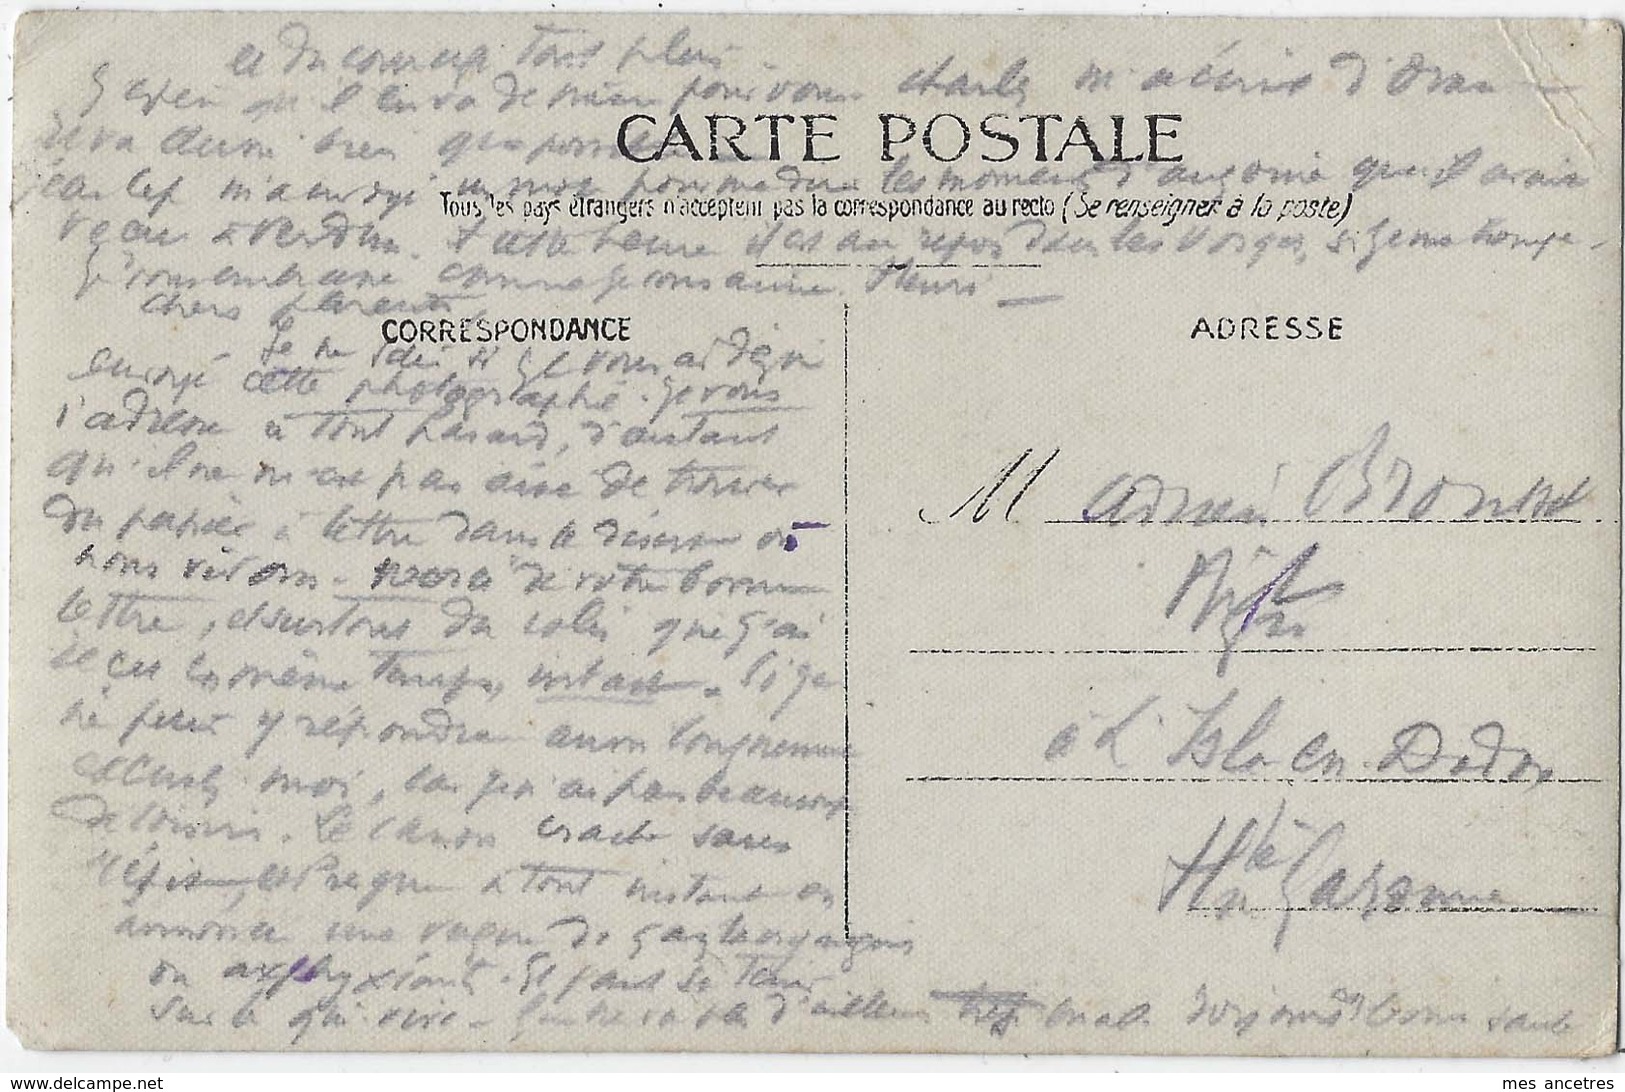 et du courage tant plus.
J'espère qu'il en va de même pour vous. Charles m'a écrit d'Oran
CARTE POSTALE
il va aussi bien que possible
m'a envoyé un mot pour me dire les moments d'angoisse qu'il avait
Tous les pays étrangers n'acceptent pas la correspondance au recto (Se renseigner à la poste)
vécu à Verdun. A cette heure il est au repos dans les Vosges, si je ne me trompe.
Je vous embrasse comme je vous aime. Henri
Chers parents,
CORRESPONDANCE
ADRESSE
Je ne sais si je vous ai déjà
envoyé cette photographie. Je vous
l'adresse à tout hasard, d'autant
qu'il ne m'est pas aisé de trouver
du papier à lettre dans le désert où
nous vivons. Merci de votre bonne
lettre, et surtout du colis que j'ai
reçu en même temps, intact. Si je
ne puis y répondre aussi longuement
excusez moi, car je n'ai pas beaucoup
de loisirs. Le canon crache sans
répit, et presque à tout instant on
annonce une vague de gaz lacrymogènes
ou asphyxiants. Il faut se tenir
sur le qui vive. Notre moral d'ailleurs est toujours bon, santé
M Adrien
à L'Isle en Dodon
Hte Garonne
mes ancetres